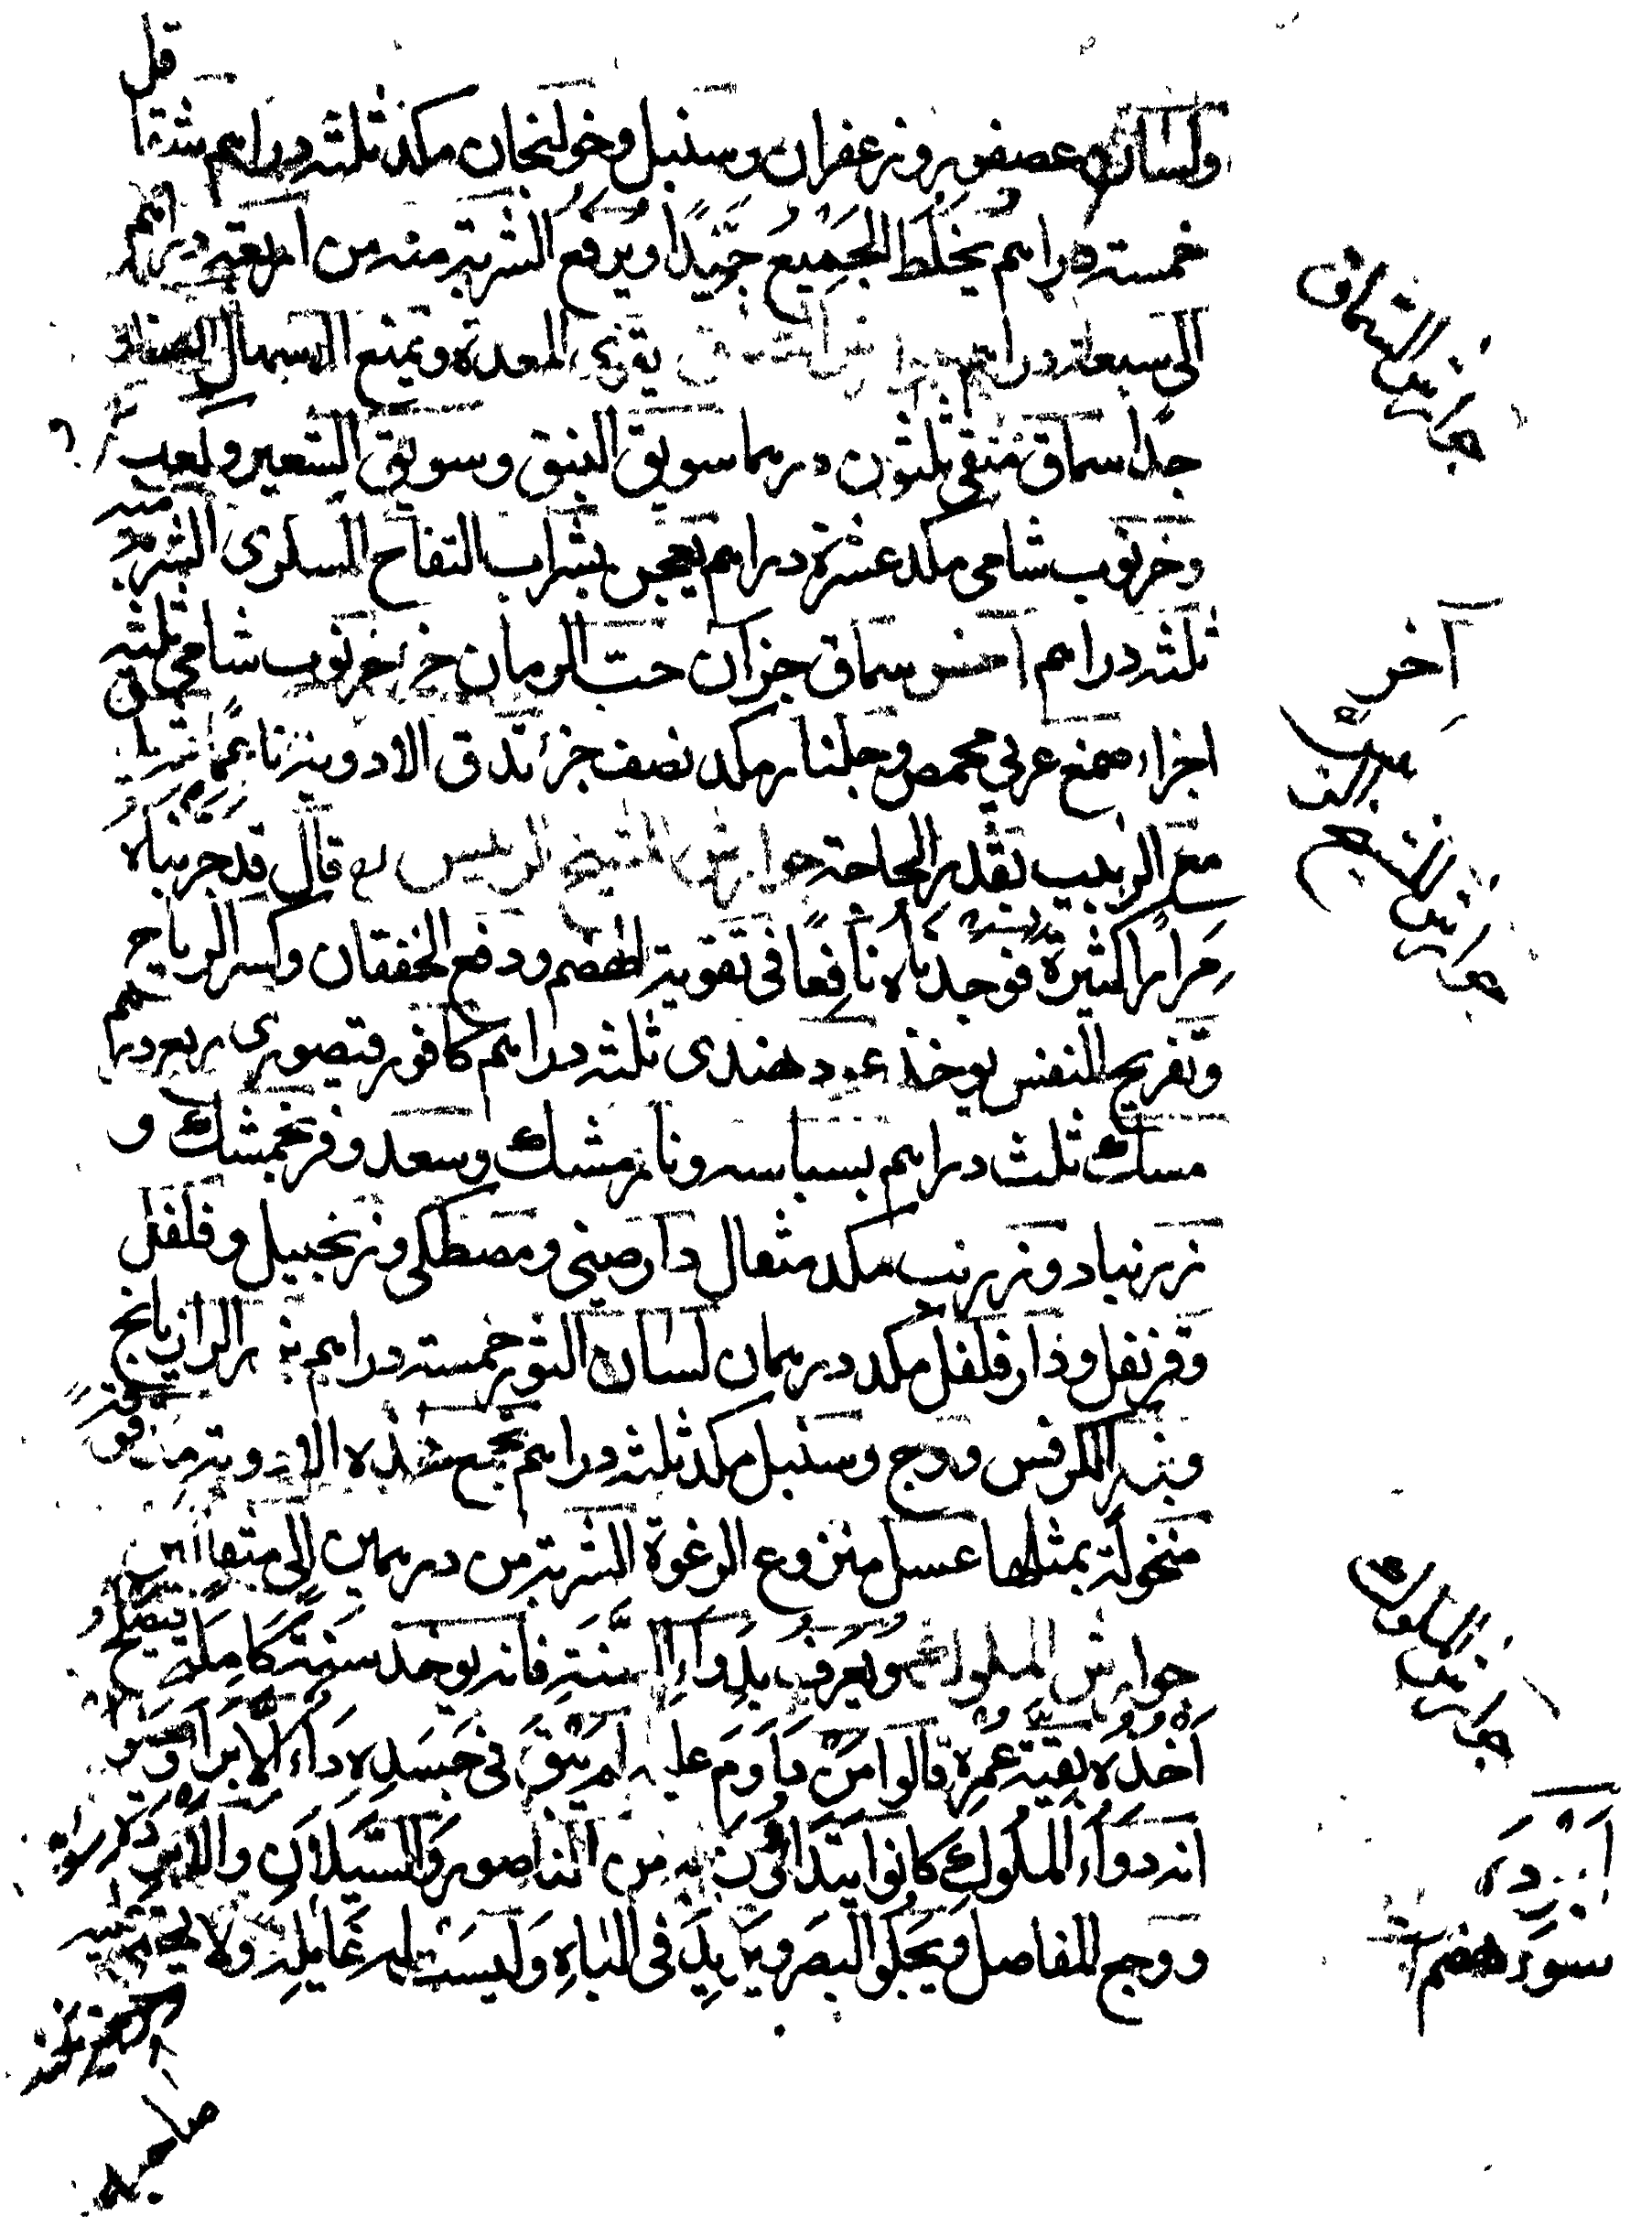 ولسان عصفور وزعفران وسنبل وخولنجان مكد ثلثه دراهم شقاقل
خمسة دراهم يُخلَط الجَميعُ جَيّدًا ويُرفع الشربة منه من اربعة دراهم
الى سبعة دراهم جوارش السماق يقوى المعدة ويمنع الاسهال الصفراوى
جدا سماق منقى ثلثون درهما سويق النبق وسويق الشعير وكعب
وخرنوب شامى مكد عشرة دراهم يعجن بشراب التفاح الشربة منه
ثلثه دراهم آخر سماق جزآن حب الرمان خرنوب شامى ثلثه
اجزاء صمغ عربي محمص وجلنار مكد نصف جزء تدق الادوية ناعما
مع الزبيب بقدر الحاجة جوارش الشيخ الرئيس قال قد جَرّبناهُ
مِرَارًا كثيرة فوجدناه نافِعًا فى تقوية الهضم ودفع الخفقان وكسر الرياح
وتفريح النفس يوخذ عود هندى ثلثه دراهم كافور قيصورى ربع درهم
مسك ثلث دراهم بسباسه ونارمشك وسعد وفرنجمشك و
زرنباد وزرنب مكد مثقال دارصينى ومصطكى وزنجبيل وفلفل
وقرنفل ودارفلفل مكد درهمان لسان الثور خمسة دراهم بزر الرازيانج
وبزر الكرفس ووج وسنبل مكد ثلثه دراهم تجمع هذه الادوية مدقوقةً
منخولة بمثلها عسل منزوع الرغوة الشربة من درهمين الى مثقالين
جوارش الملوك ويُعرَفُ بدواءِ السَّنَةِ فانه يوخذ سَنَةً كامِلَةً
اَخذُه بقيّة عُمُرِه قالوا مَنْ دَاوَمَ عليه لم يَبقَ فى جَسَدِه دَاء اِلاّ بَرَأ وهو
انه دَوَاءُ المُلوكِ كانوا يتداوون به من الناصور والسَّيَلانِ والاِبرِدَة
ووجع المفاصل ويَجلُو البَصَر ويَزِيدُ فى البَاهِ وَلَيسَتْ له غايلة ولا يحتمى
جوارش السماق
آخر
جوارش الشيخ
جوارش الملوك
اِبْرِدَه
سوء هضم